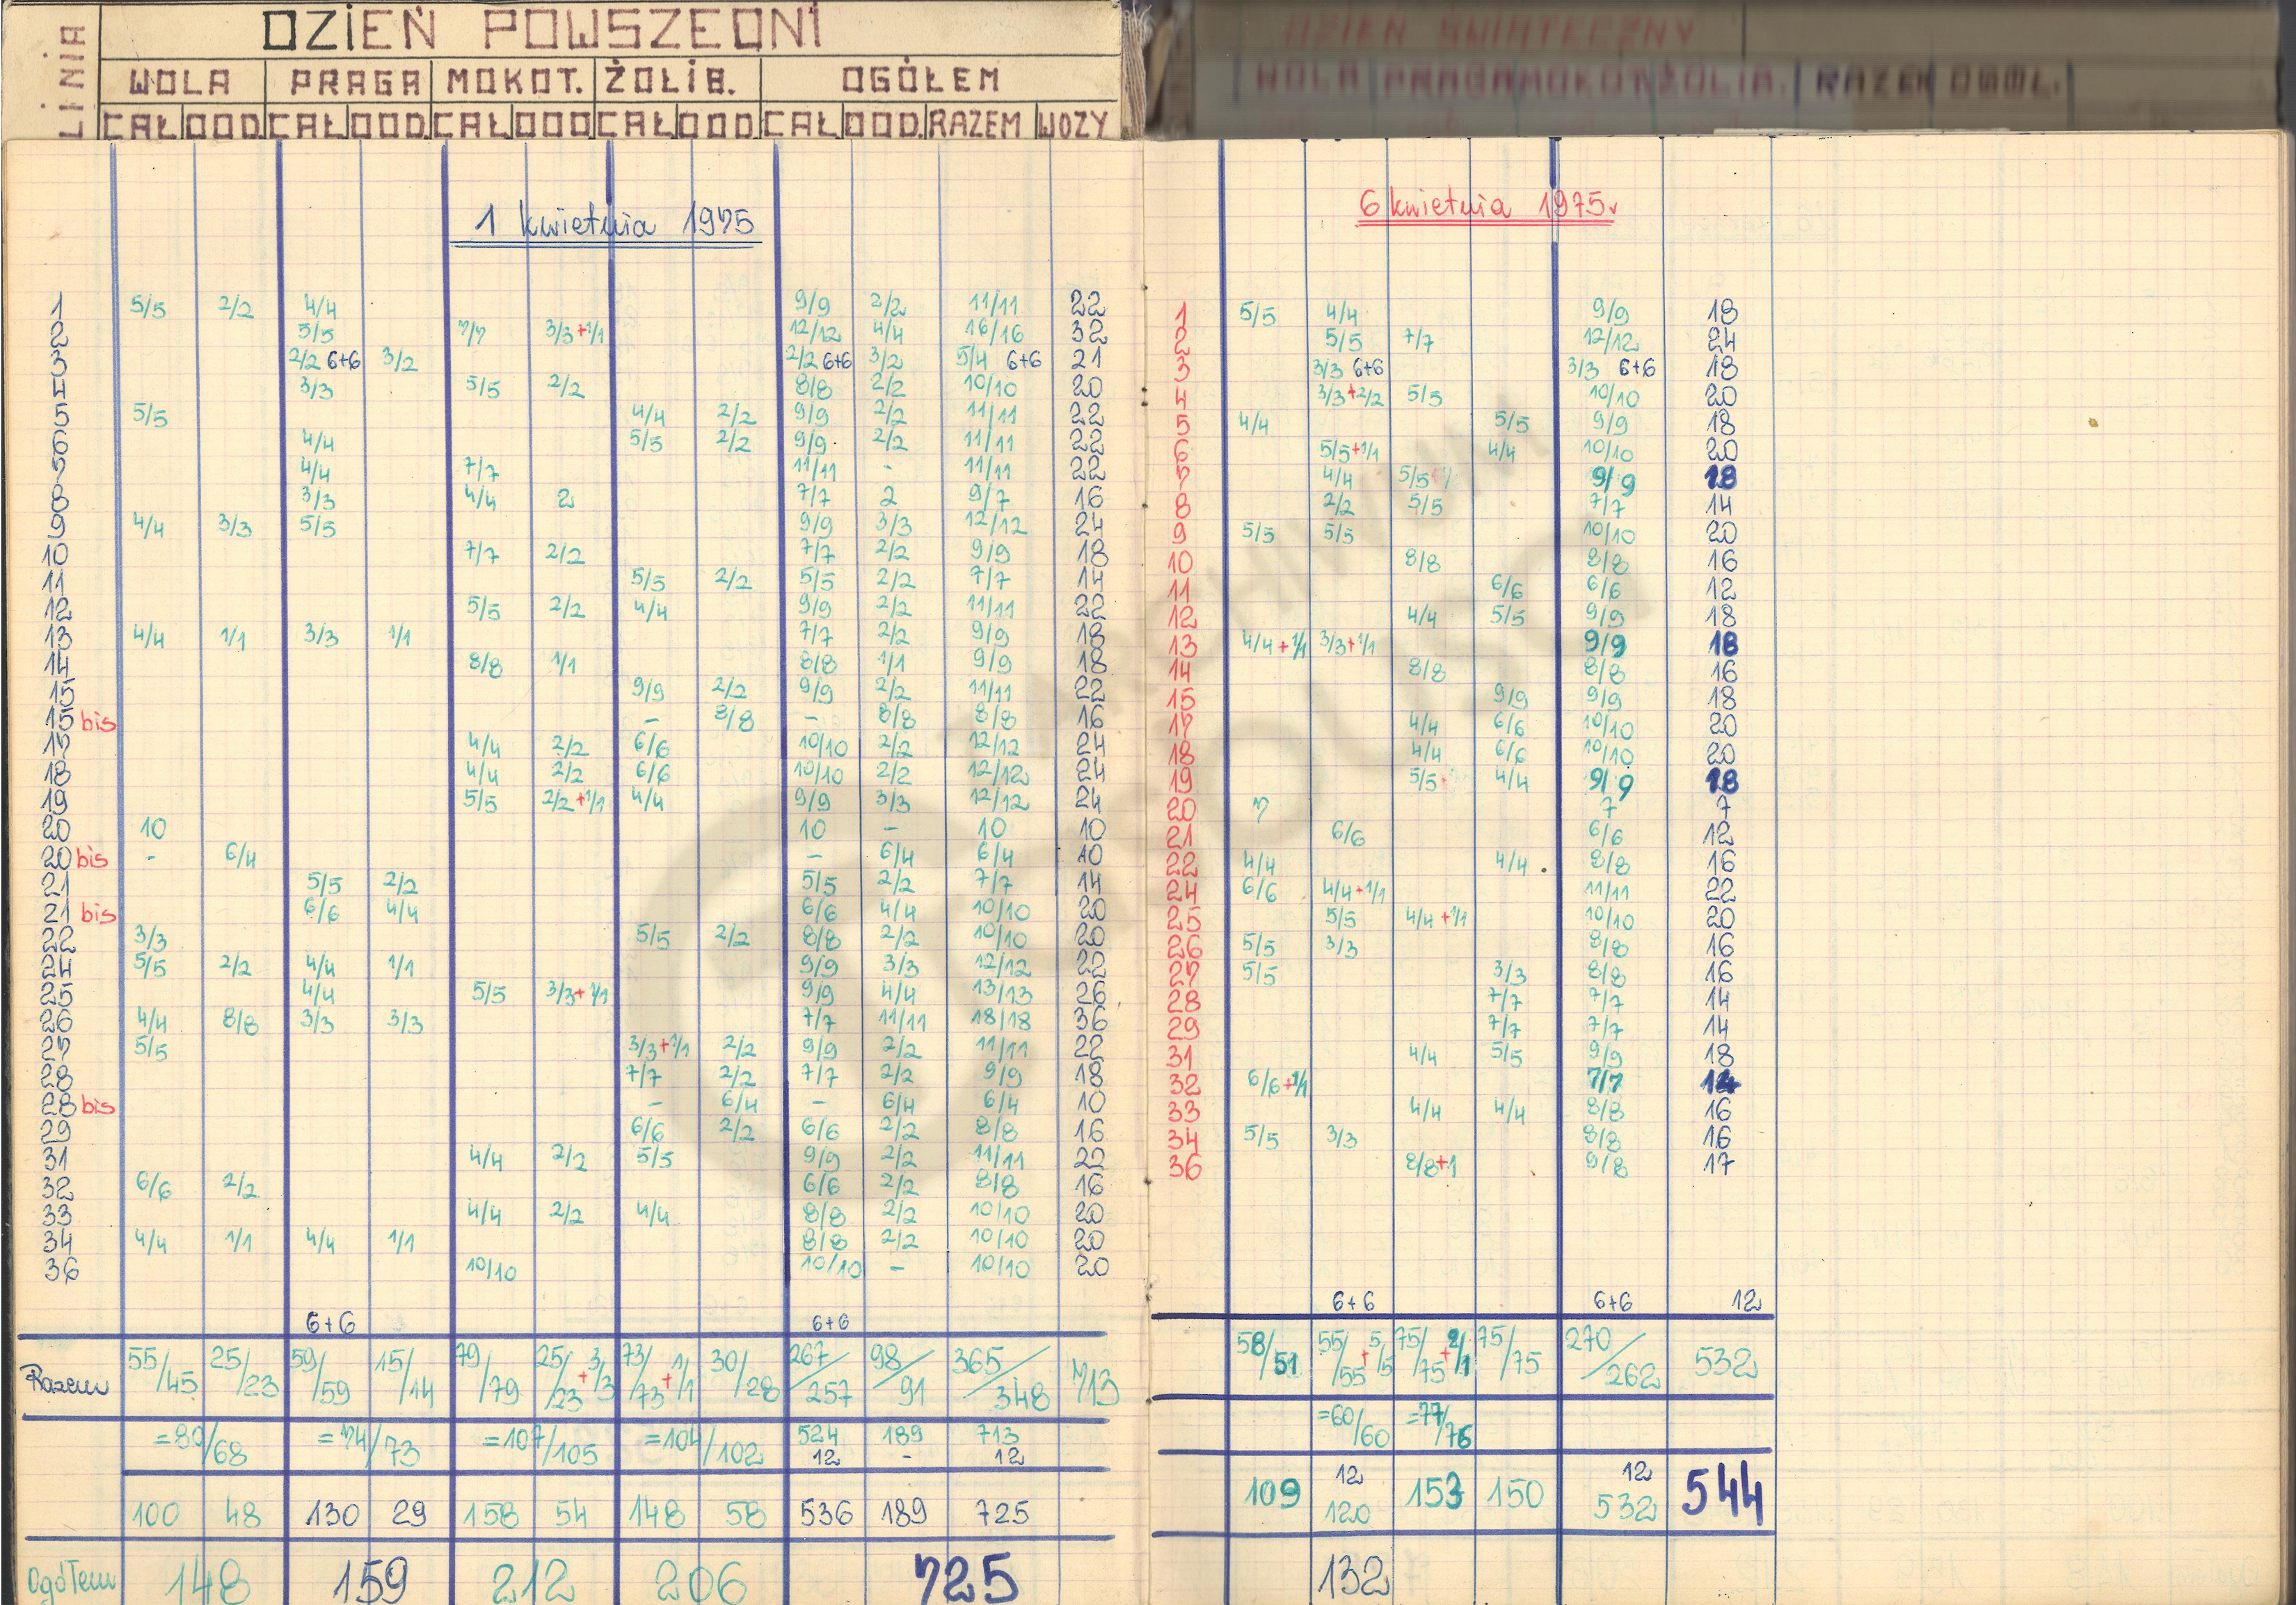 DZIEŃ POWSZEDNI
LINIA
WOLA PRAGA MOKOT. ŻOLIB. OGÓŁEM
CAŁ DOD. CAŁ DOD. CAŁ DOD CAŁ DOD. CAŁ DOD. RAZEM WOZY
1 kwietnia 1975
1 5/5 2/2 4/4 9/9 2/2 11/11 22
2 5/5 7/7 3/3+1/1 12/12 4/4 16/16 32
3 2/2 6+6 3/2 2/2 6+6 3/2 5/4 6+6 21
4 3/3 5/5 2/2 8/8 2/2 10/10 20
5 5/5 4/4 2/2 9/9 2/2 11/11 22
6 4/4 5/5 2/2 9/9 2/2 11/11 22
7 4/4 7/7 11/11 - 11/11 22
8 3/3 4/4 2 7/7 2 9/7 16
9 4/4 3/3 5/5 9/9 3/3 12/12 24
10 7/7 2/2 7/7 2/2 9/9 18
11 5/5 2/2 5/5 2/2 7/7 14
12 5/5 2/2 4/4 9/9 2/2 11/11 22
13 4/4 1/1 3/3 1/1 7/7 2/2 9/9 18
14 8/8 1/1 8/8 1/1 9/9 18
15 9/9 2/2 9/9 2/2 11/11 22
15 bis - 8/8 - 8/8 8/8 16
17 4/4 2/2 6/6 10/10 2/2 12/12 24
18 4/4 2/2 6/6 10/10 2/2 12/12 24
19 5/5 2/2+1/1 4/4 9/9 3/3 12/12 24
20 10 10 - 10 10
20 bis - 6/4 - 6/4 6/4 10
21 5/5 2/2 5/5 2/2 7/7 14
21 bis 6/6 4/4 6/6 4/4 10/10 20
22 3/3 5/5 2/2 8/8 2/2 10/10 20
24 5/5 2/2 4/4 1/1 9/9 3/3 12/12
25 4/4 5/5 3/3+1/1 9/9 4/4 13/13 26
26 4/4 8/8 3/3 3/3 7/7 11/11 18/18 36
27 5/5 3/3+1/1 2/2 9/9 2/2 11/11 22
28 7/7 2/2 7/7 2/2 9/9 18
28 bis - 6/4 - 6/4 6/4 10
29 6/6 2/2 6/6 2/2 8/8 16
31 4/4 2/2 5/5 9/9 2/2 11/11
32 6/6 2/2 6/6 2/2 8/8 16
33 4/4 2/2 4/4 8/8 2/2 10/10 20
34 4/4 1/1 4/4 1/1 8/8 2/2 10/10 20
36 10/10 10/10 - 10/10 20
6+6 6+6
Razem 55/45 25/23 59/59 15/14 79/79 25/23+3/3 73/73+1/1 30/28 267/257 98/91 365/348 713
=80/68 =74/73 =107/105 =104/102 524 189 713
12 - 12
100 48 130 29 158 54 148 58 536 189 725
Ogółem 148 159 212 206 725
DZIEŃ ŚWIĄTECZNY
WOLA PRAGA MOKOT ŻOLIB. RAZEM OGÓŁ.
6 kwietnia 1975r
1 5/5 4/4 9/9 18
2 5/5 7/7 12/12 24
3 3/3 6+6 3/3 6+6 18
4 3/3+2/2 5/5 10/10 20
5 4/4 5/5 9/9 18
6 5/5+1/1 4/4 10/10 20
7 4/4 5/5 9/9 18
8 2/2 5/5 7/7 14
9 5/5 5/5 10/10 20
10 8/8 8/8 16
11 6/6 6/6 12
12 4/4 5/5 9/9 18
13 4/4+1/1 3/3+1/1 9/9 18
14 8/8 8/8 16
15 9/9 9/9 18
17 4/4 6/6 10/10 20
18 4/4 6/6 10/10 20
19 5/5 4/4 9/9 18
20 7 7 7
21 6/6 6/6 12
22 4/4 4/4 8/8 16
24 6/6 4/4+1/1 11/11 22
25 5/5 4/4+1/1 10/10 20
26 5/5 3/3 8/8 16
27 5/5 3/3 8/8 16
28 7/7 7/7 14
29 7/7 7/7 14
31 4/4 5/5 9/9 18
32 6/6+1/1 7/7 14
33 4/4 4/4 8/8 16
34 5/5 3/3 8/8 16
36 8/8+1 9/8 17
6+6 6+6 12
58/51 55/55+5/5 75/75+2/1 75/75 270/262 532
=60/60 =77/76
109 12 153 150 12 544
120 532
132